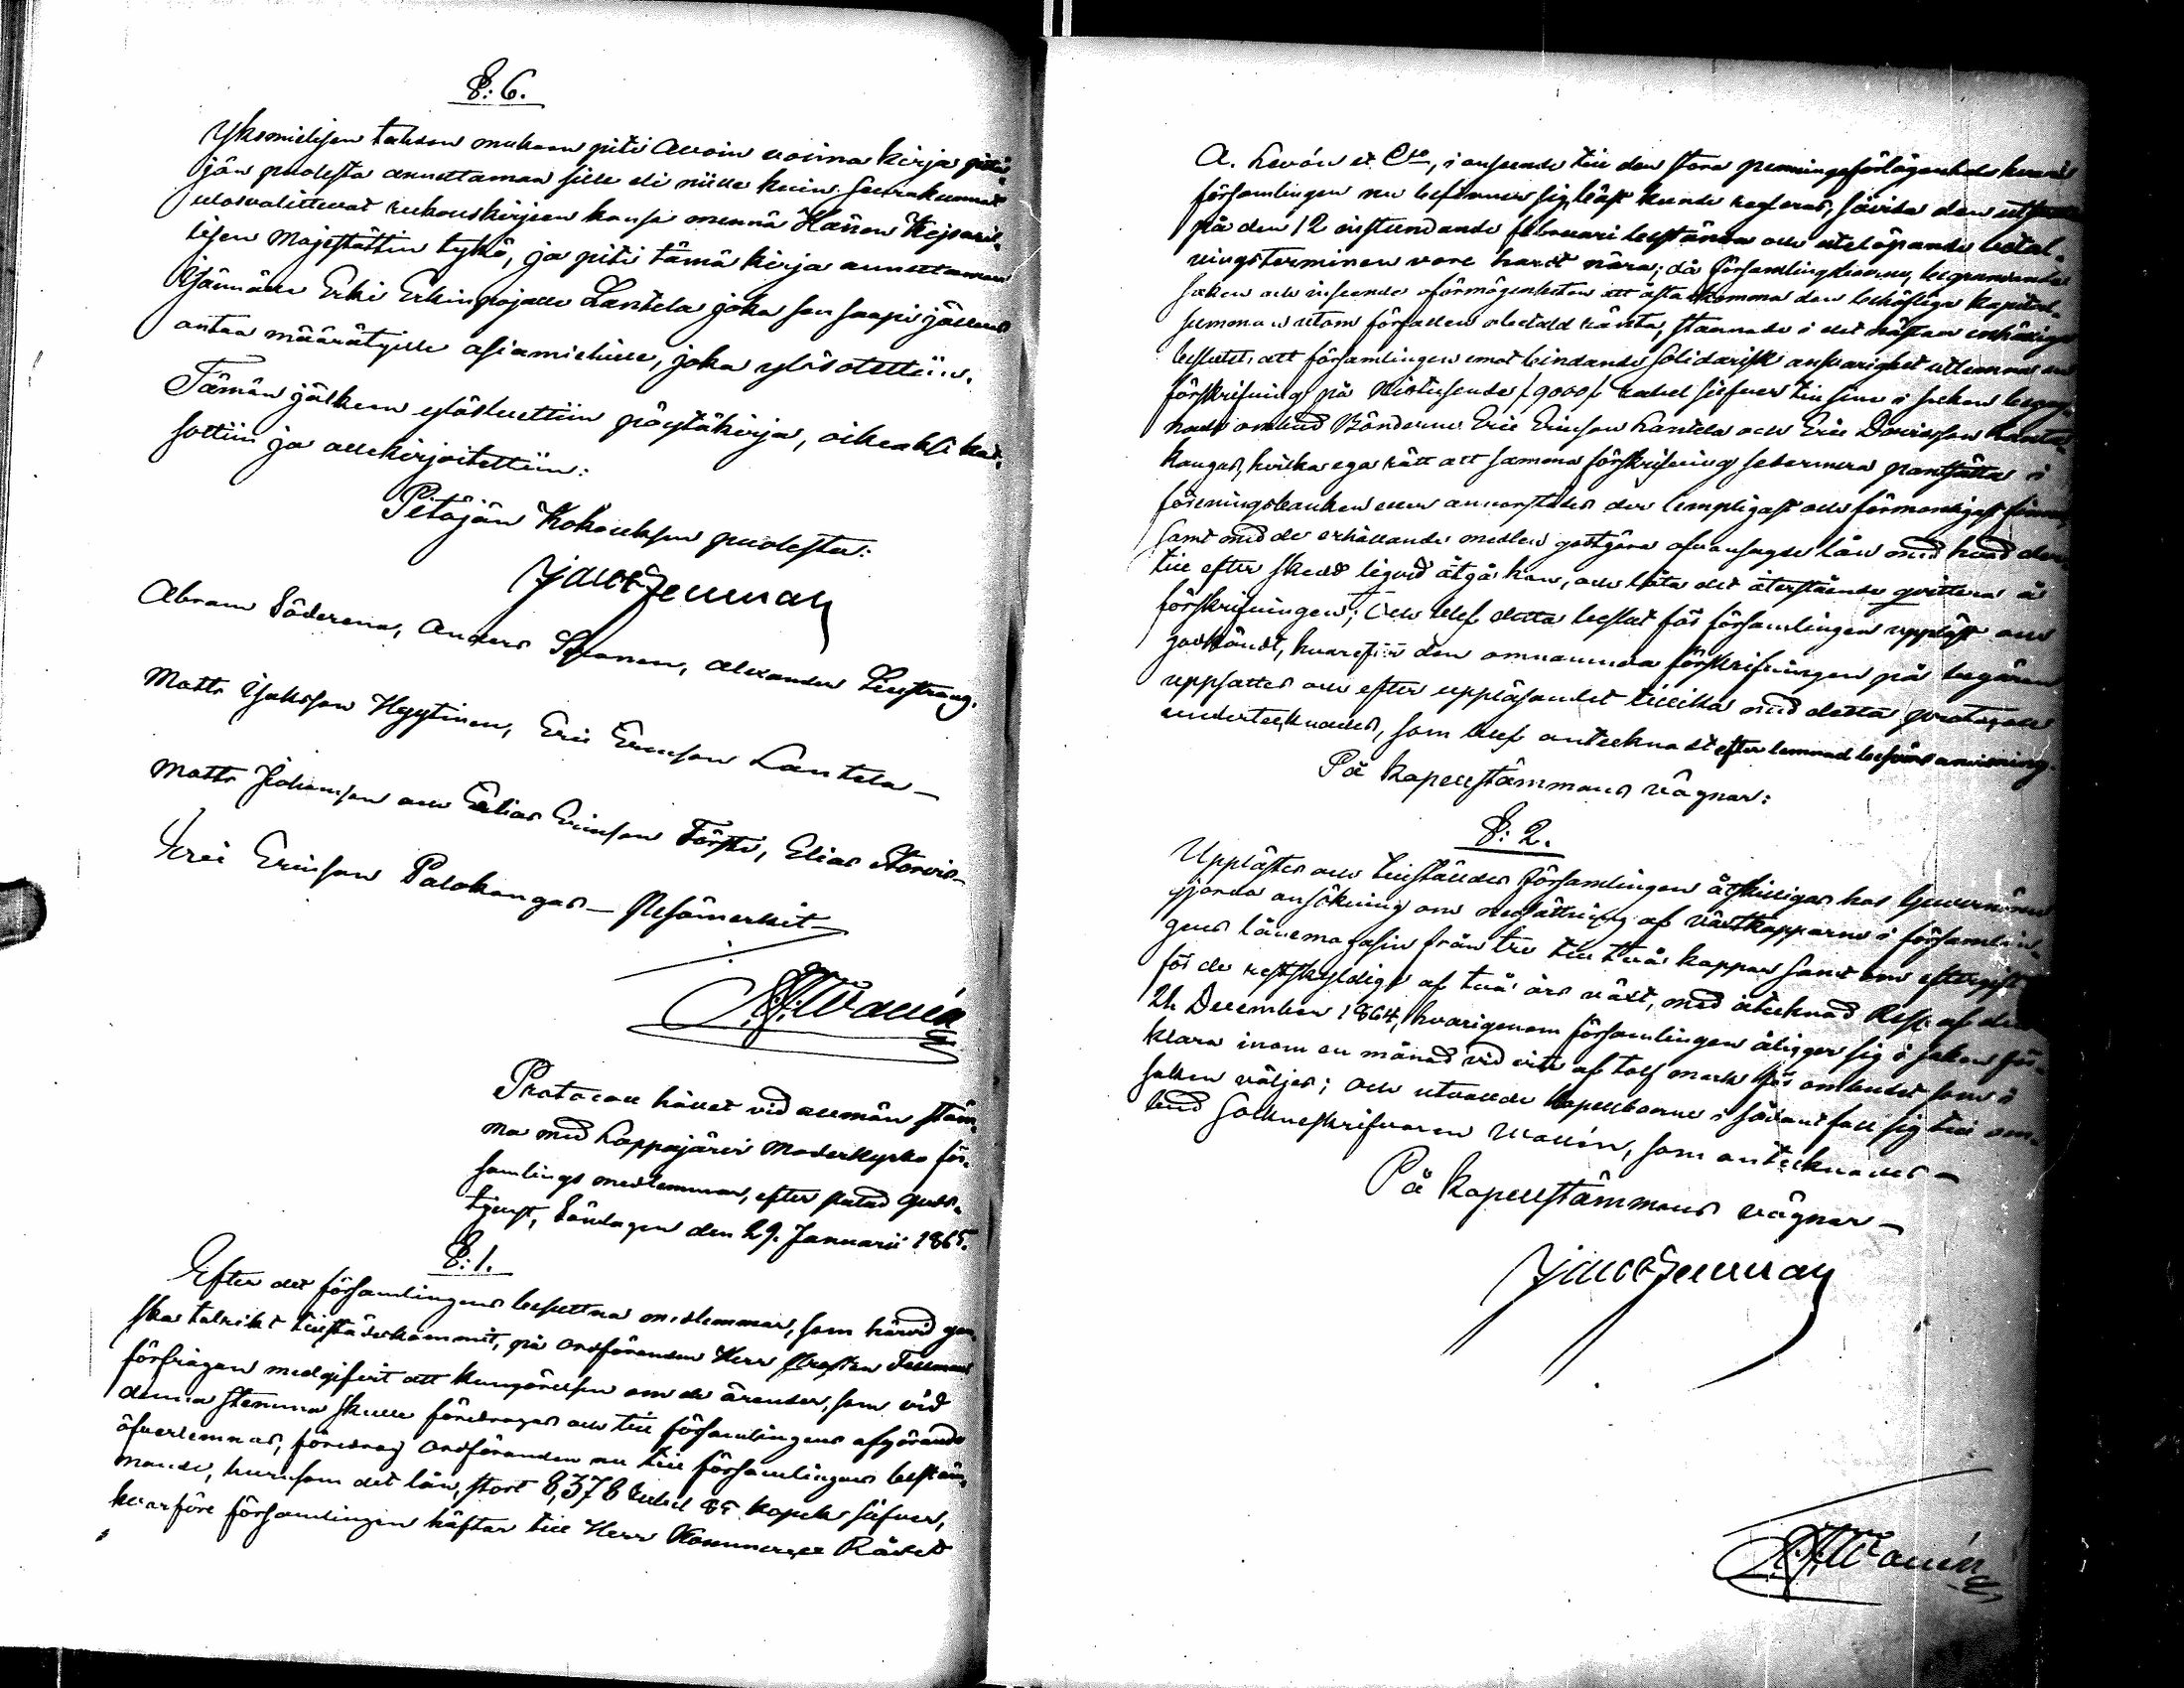 §: 6.
Yksmielisen tahdon mukaan piti avoin voima kirja pitä-
jän puolesta annettaman sille eli niille kuin seurakunnat
ulosvalittevat rukouskirjeen kansa mennä Hänen Keisaril-
lisen Majestättin tykö, ja piti tämä kirja annettaman
Isännälle Erki Erkinpojalle Lantela joka sen saapi jälleens
antaa määrätyille asiamiehille, joka ylösotettiin.
Tämän jälkeen ylösluettiin pöytäkirja, oikeaksi kat-
sottiin ja allekirjoitettiin:
Pitäjän Kokouksen puolesta:
Jacob Fellman
Abram Söderena, Anders Sponen, Alexander Liustrang,
Matts Isaksson Hyytinen, Eric Ericsson Lantela –
Matts Johansson och Elias Ericsson Försti, Elias
Eric Ericsson Palokangas – Puumerkit –
Wallén
Protocoll hållet vid allmän stäm-
ma med Lappajärvi Moderkyrko för-
samlings medlemmar, efter slutad guds-
tjenst, Söndagen den 29. Januarii 1865.
§: 1.
Efter det församlingens besuttna medlemmar, som härvid gan-
ska talrikt tillstädeskommit, på ordföranden Herr Prosten Fellmans
förfrågan medgifvit att kungörelsen om de ärender, som vid
denna stemma skulle föredragas och till församlingens afgörande
öfverlemnas, föredrog ordföranden nu till församlingens bestäm-
mande, hurusom det lån, stort 8,378 rubel 85 kopek silfver,
hvarföre församlingen häftar till Herr Kommerce Rådet
A. Levón et C:o, i anseende till den stora penningeförlägenhet hvari
församlingen nu befinner sig, bäst kunde regleras, såvida den
på den 12 instundande februari bestämda och utelöpande betal-
ningsterminen vore hardt nära; då församlingsboerne, begrundande
saken och inseende oförmögenheten att åstadkomma den behöfliga kapital-
summan utom förfallen obetald ränta, stannade i det nästan enhälliga
beslutet, att församlingen emot bindande solidarisk ansvarighet utlemnar en
förskrifning på Niotusende /9000/ rubel silfver till sine i saken
ombud Bönderne Eric Ericsson Lantela och Eric Davidsson
kangas, hvilka ega rätt att samma förskrifning sedermera pantsätta i
föreningsbanken eller annorstädes der lämpligast och förmonligast finnes,
samt med de erhållande medlen godtgöra ofvansagde lån med hvad der-
till efter skedd liqvid åtgå kan, och låta det återstående qvittera å
förskrifningen; Och blef detta beslut för församlingen uppläst och
godkändt, hvarefter den omnämnda förskrifningen på begäran
uppsattes och efter uppläsandet tillika med detta protocoll
undertecknades, som blef antecknadt efter lemnad besvärsanvisning.
På Kapellstämmans vägnar:
§: 2.
Upplästes och tillställdes församlingen åtskilligas hos Guvernören
gjorda ansökning om nedsättning af växtkapparne i församlin-
gens lånemagasin från tre till två kappar samt om eftergift
för de restskyldige af två års växt, med åtecknad Resp. af den
21 December 1864, hvarigenom församlingen åligger sig i saken för-
klara inom en månad vid vite af tolf mark för ombudet som i
saken väljes; och utvalde kapellboerne i sådant fall sig till om-
bud Sockneskrifvaren Wallén, som antecknades –
På Kapellstämmans vägnar –
Jacob Fellman
Wallén